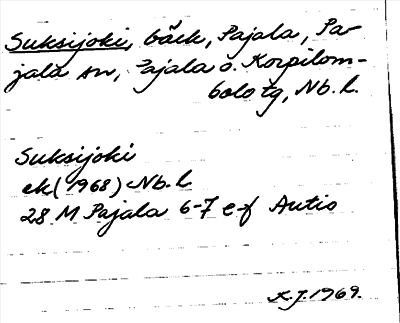 Suksijoki, bäck, Pajala, Pa-
jala sn, Pajala o. Korpilom-
bolo tg, Nb. l.
Suksijoki
ek (1968) Nb. l
28 M Pajala 6-7 e-f Autio
K.J. 1969.